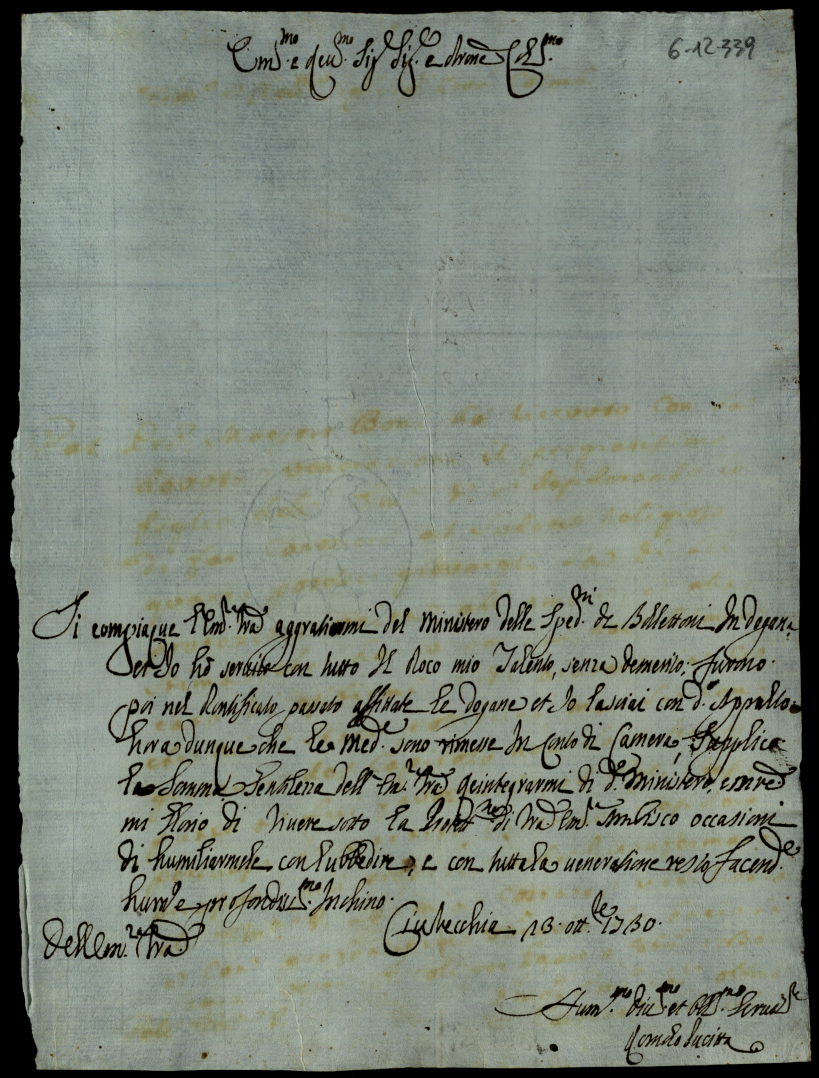 Em.mo e Reu.mo Sig.r Sig.r e Prone Col.mo
6-12-339
Si compiaque l'Em.za Vra aggratiarmi del Ministero delle Sped.ni de Bollettoni In dogana,
et Io hò seruito con tutto Il Poco mio Talento, senza demerito; furono
poi nel Pontificato passato affittate le dogane et Io lasciai con d.o Appalto
hora dunque che le Med.e sono rimesse In Conto di Camera, supplico
la Somma Gentilezza dell' Em.za Vra Reintegrarmi di d.o Ministero,
mi glorio di Viuere sotto la Protet.ne di Vra Em.za Ambisco occasioni
di humiliarmele con l'ubbedire, e con tutta la ueneratione resto facend.le
hum.o e profondiss.mo Inchino.
Ciu.vecchia 13. ott.re 1730.
Dell'Em.za Vra
Hum.mo diu.mo et Obl.mo Seruid.re